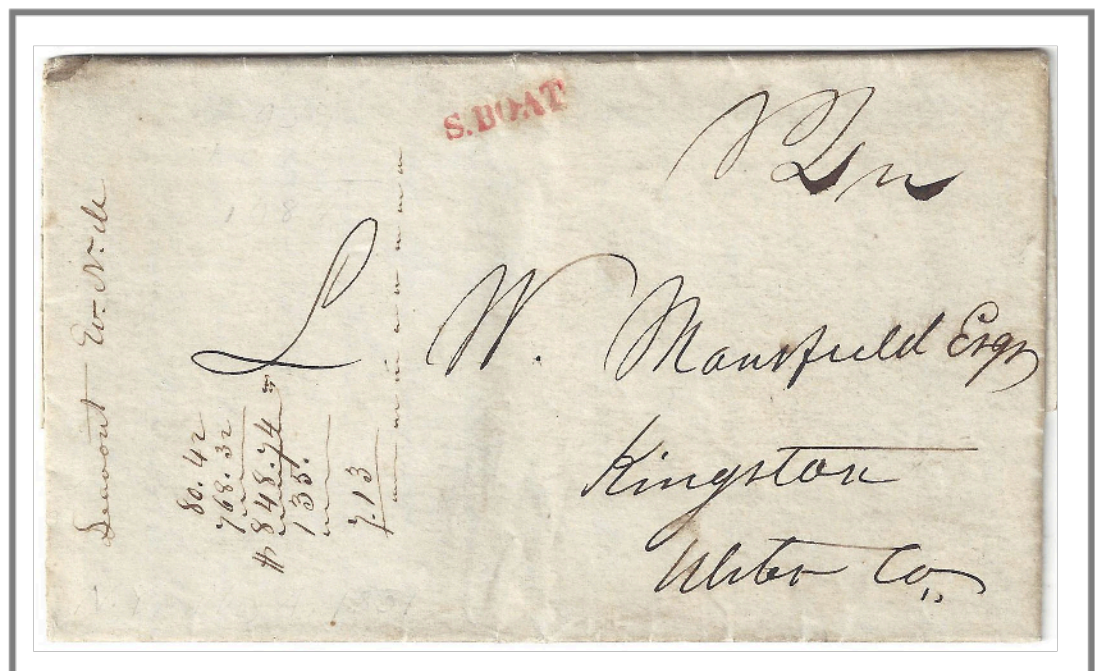 S. BOAT
L W. Mansfield Esqr
Kingston
Ulster Co,,
80.42
768.32
$848.74
135.
7.13